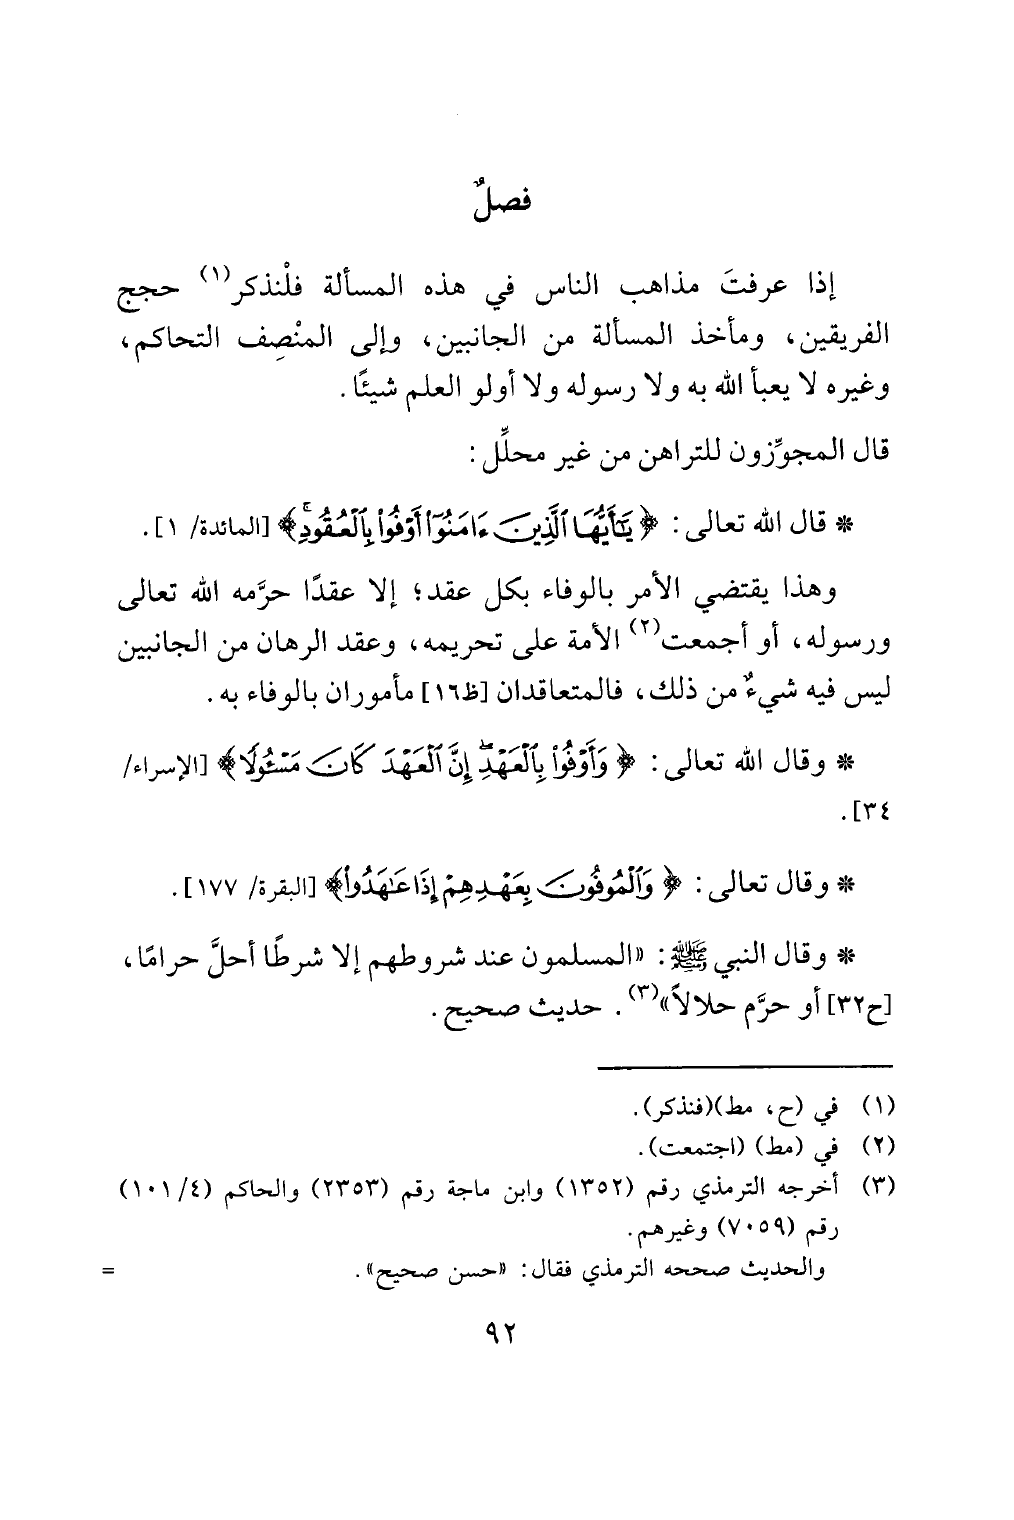 فصلٌ
إذا عرفتَ مذاهب الناس في هذه المسألة فلْنذكر(١) حجج
الفريقين، ومأخذ المسألة من الجانبين، وإلى المنْصِف التحاكم،
وغيره لا يعبأ الله به ولا رسوله ولا أولو العلم شيئًا.
قال المجوِّزون للتراهن من غير محلِّل:
* قال الله تعالى: ﴿يَٰٓأَيُّهَا ٱلَّذِينَ ءَامَنُوٓا۟ أَوْفُوا۟ بِٱلْعُقُودِۚ﴾ [المائدة/ ١].
وهذا يقتضي الأمر بالوفاء بكل عقد؛ إلا عقدًا حرَّمه الله تعالى
ورسوله، أو أجمعت(٢) الأمة على تحريمه، وعقد الرهان من الجانبين
ليس فيه شيءٌ من ذلك، فالمتعاقدان [ظ١٦] مأموران بالوفاء به.
* وقال الله تعالى: ﴿وَأَوْفُوا۟ بِٱلْعَهْدِۖ إِنَّ ٱلْعَهْدَ كَانَ مَسْـُٔولًا﴾ [الإسراء/
٣٤].
* وقال تعالى: ﴿وَٱلْمُوفُونَ بِعَهْدِهِمْ إِذَا عَٰهَدُوا۟﴾ [البقرة/ ١٧٧].
* وقال النبي ﷺ: «المسلمون عند شروطهم إلا شرطًا أحلَّ حرامًا،
[ح٣٢] أو حرَّم حلالاً»(٣). حديث صحيح.
(١) في (ح، مط)(فنذكر).
(٢) في (مط) (اجتمعت).
(٣) أخرجه الترمذي رقم (١٣٥٢) وابن ماجة رقم (٢٣٥٣) والحاكم (٤/ ١٠١)
رقم (٧٠٥٩) وغيرهم.
والحديث صححه الترمذي فقال: «حسن صحيح». =
٩٢